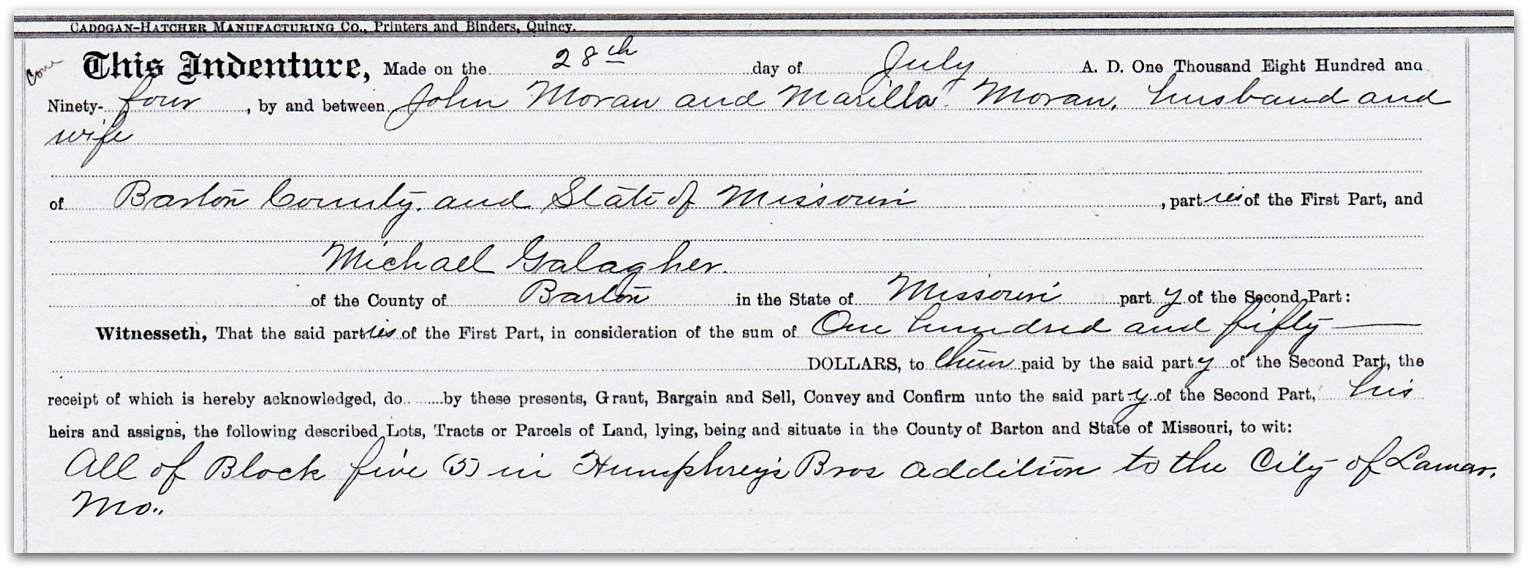 CADOGAN-HATCHER MANUFACTURING CO., Printers and Binders, Quincy.
Com This Indenture, Made on the 28th day of July A. D. One Thousand Eight Hundred and
Ninety- four, by and between John Moran and Marilla Moran, husband and
wife
of Barton County, and State of Missouri, parties of the First Part, and
Michael Galagher.
of the County of Barton in the State of Missouri party of the Second Part:
Witnesseth, That the said parties of the First Part, in consideration of the sum of One hundred and fifty —
DOLLARS, to them paid by the said party of the Second Part, the
receipt of which is hereby acknowledged, do by these presents, Grant, Bargain and Sell, Convey and Confirm unto the said party of the Second Part, his
heirs and assigns, the following described Lots, Tracts or Parcels of Land, lying, being and situate in the County of Barton and State of Missouri, to wit:
All of Block five (5) in Humphrey's Bros addition to the City of Lamar,
Mo..